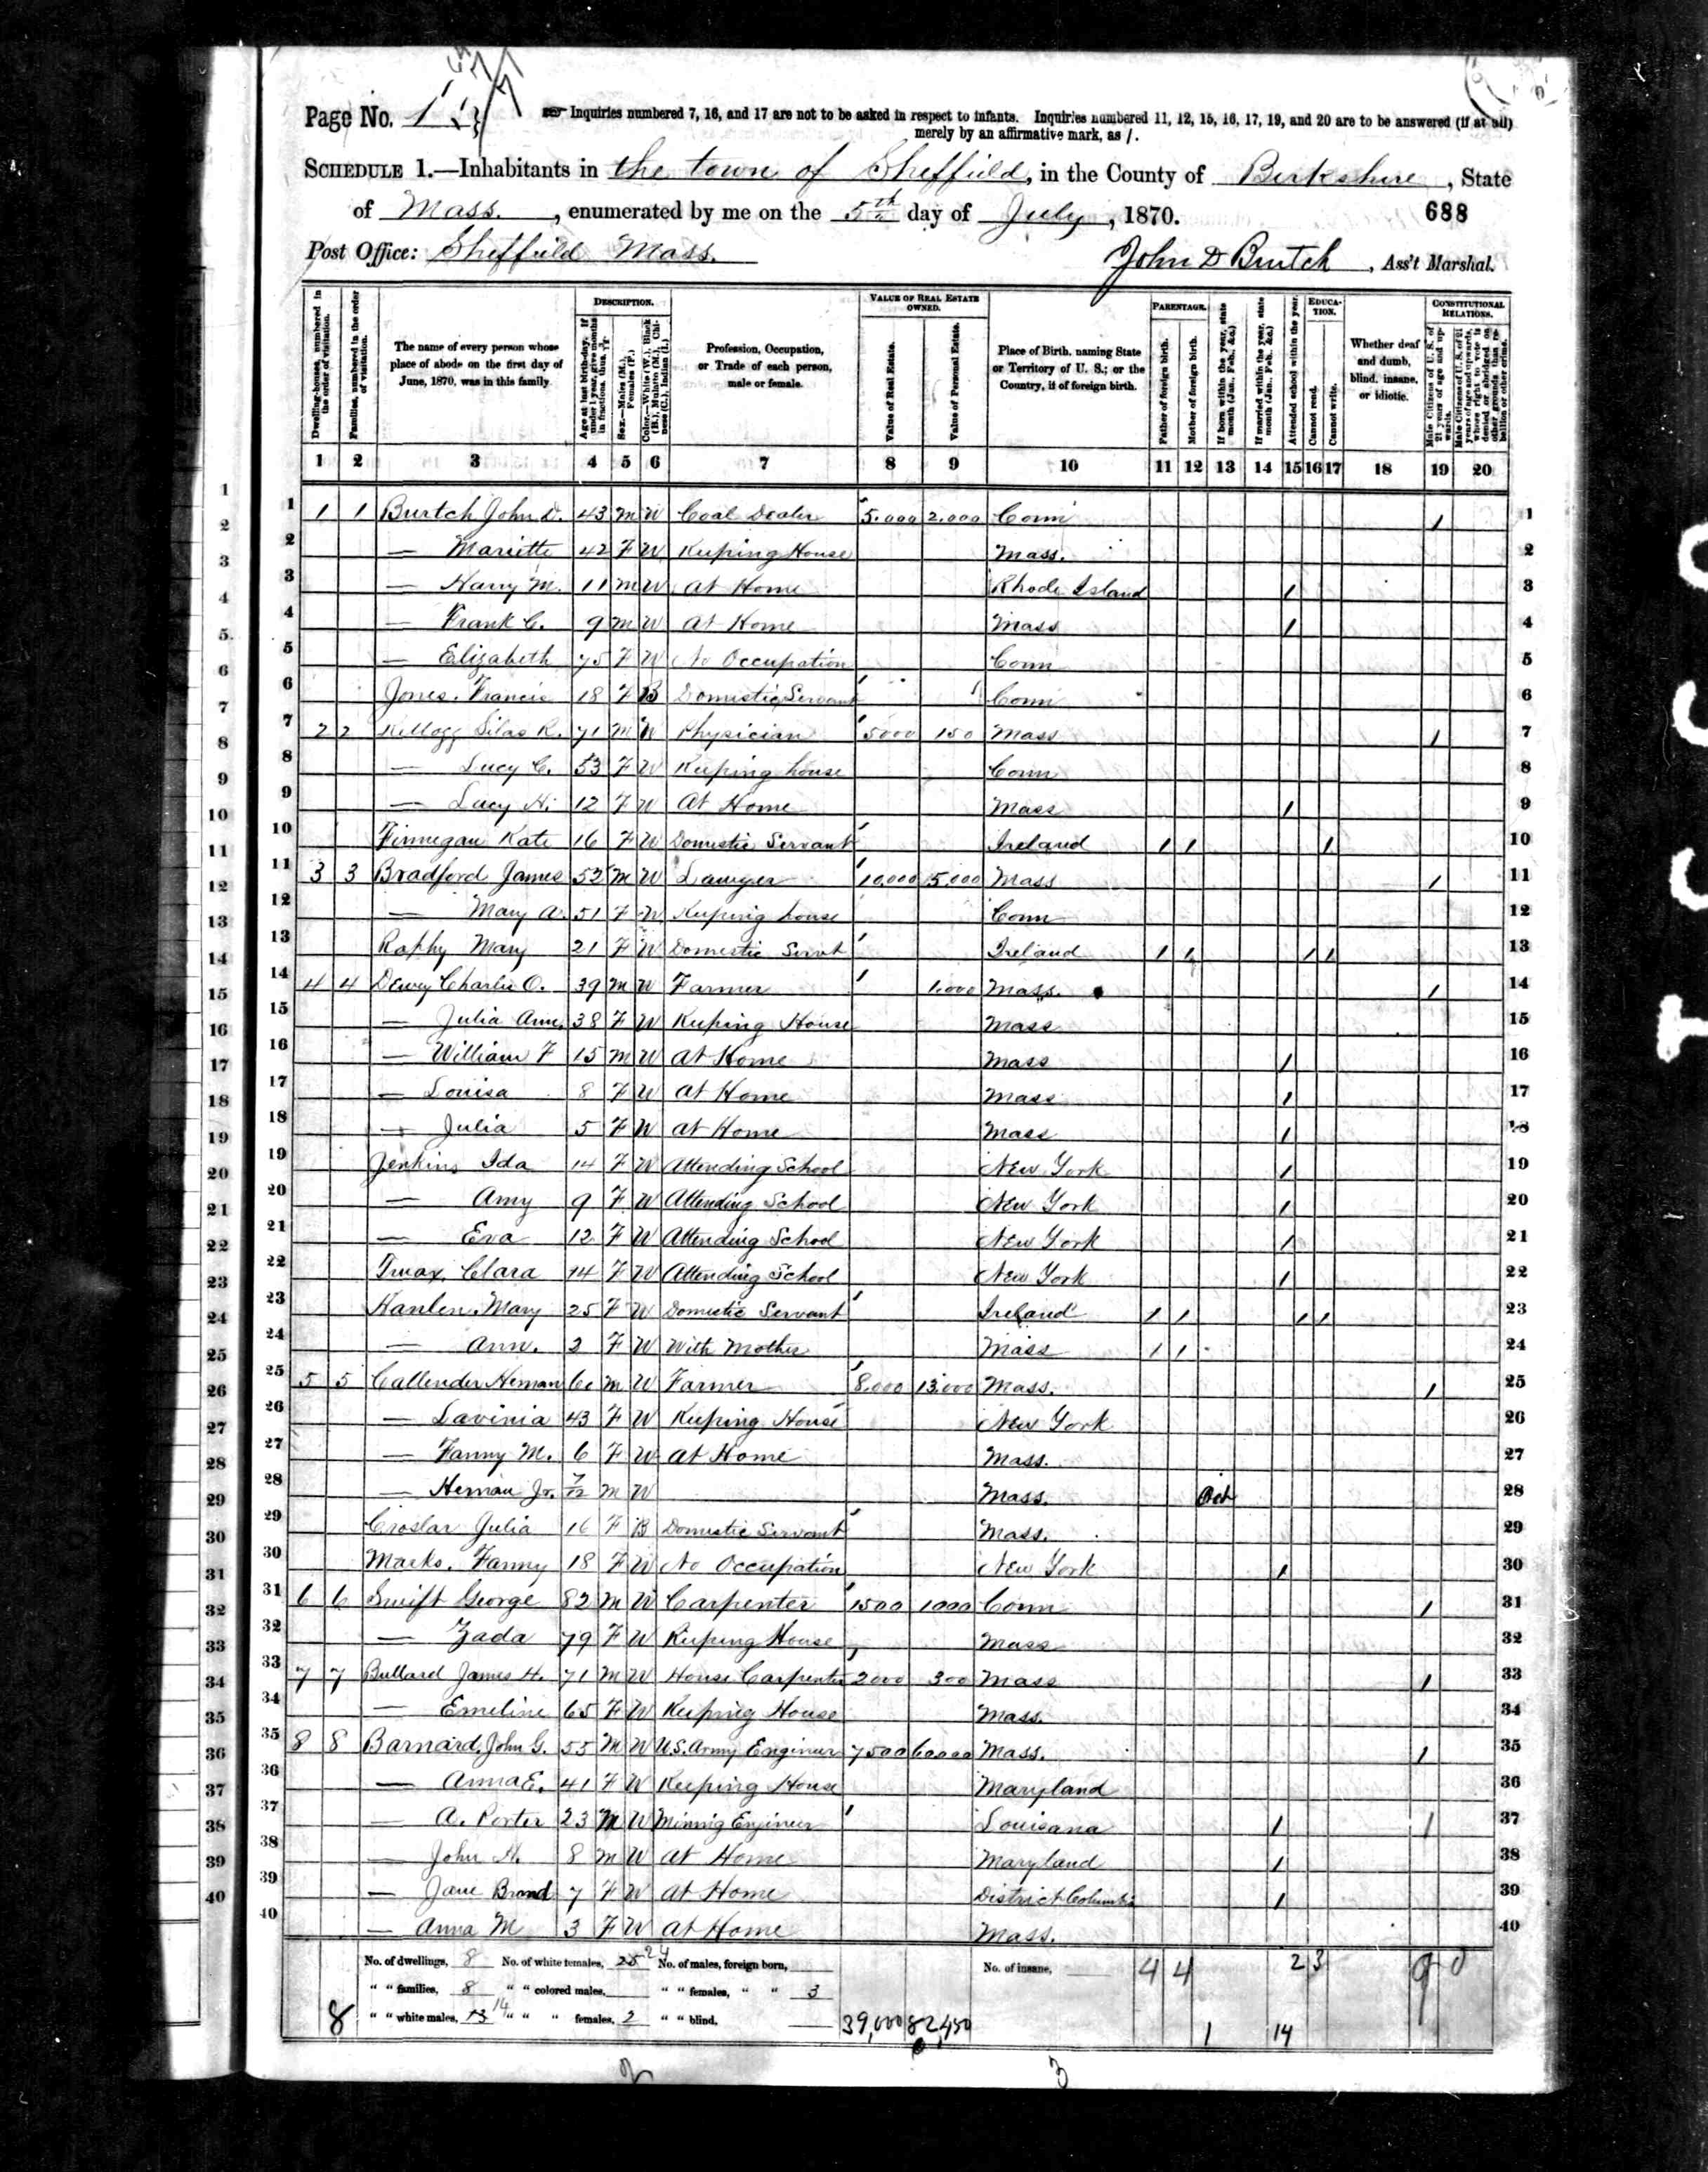 Page No. 1
Inquiries numbered 7, 16, and 17 are not to be asked in respect to infants. Inquiries numbered 11, 12, 15, 16, 17, 19, and 20 are to be answered (if at all)
merely by an affirmative mark, as /.
SCHEDULE 1.—Inhabitants in the town of Sheffield, in the County of Berkshire, State
of Mass., enumerated by me on the 5th day of July, 1870. 688
Post Office: Sheffield Mass. John D Burtch, Ass't Marshal.
DESCRIPTION. VALUE OF REAL ESTATE OWNED. PARENTAGE. EDUCATION. CONSTITUTIONAL RELATIONS.
Dwelling-houses, numbered in the order of visitation.
Families, numbered in the order of visitation.
The name of every person whose place of abode on the first day of June, 1870, was in this family.
Age at last birth-day. If under 1 year, give months in fractions, thus, 3/12
Sex.—Males (M.), Females (F.)
Color.—White (W.), Black (B.), Mulatto (M.), Chinese (C.), Indian (I.)
Profession, Occupation, or Trade of each person, male or female.
Value of Real Estate.
Value of Personal Estate.
Place of Birth, naming State or Territory of U. S.; or the Country, if of foreign birth.
Father of foreign birth.
Mother of foreign birth.
If born within the year, state month (Jan., Feb., &c.)
If married within the year, state month (Jan., Feb., &c.)
Attended school within the year.
Cannot read.
Cannot write.
Whether deaf and dumb, blind, insane, or idiotic.
Male Citizens of U. S. of 21 years of age and upwards.
Male Citizens of U. S. of 21 years of age and upwards, whose right to vote is denied or abridged on other grounds than rebellion or other crime.
1 2 3 4 5 6 7 8 9 10 11 12 13 14 15 16 17 18 19 20
1 1 1 Burtch John D. 43 M W Coal Dealer 5.000 2.000 Conn / 1
2 — Mariette 42 F W Keeping House Mass. 2
3 — Harry M. 11 M W At Home Rhode Island / 3
4 — Frank C. 9 M W At Home Mass / 4
5 — Elizabeth 75 F W No Occupation Conn 5
6 Jones. Francis 18 F B Domestic Servant Conn 6
7 2 2 Kellogg Silas R. 71 M W Physician 5000 150 Mass / 7
8 — Lucy C. 53 F W Keeping house Conn 8
9 — Lucy H. 12 F W At Home Mass / 9
10 Finnegan Kate 16 F W Domestic Servant Ireland / / / 10
11 3 3 Bradford James 52 M W Lawyer 10,000 5,000 Mass / 11
12 — Mary A. 51 F W Keeping house Conn 12
13 Raphy Mary 21 F W Domestic Servt Ireland / / / / 13
14 4 4 Dewey Charlie O. 39 M W Farmer 1.000 Mass. / 14
15 — Julia Ann. 38 F W Keeping House Mass 15
16 — William F 15 M W At Home Mass / 16
17 — Louisa 8 F W At Home Mass / 17
18 — Julia 5 F W At Home Mass / 18
19 Jenkins Ida 14 F W Attending School New York / 19
20 — Amy 9 F W Attending School New York / 20
21 — Eva 12 F W Attending School New York / 21
22 Clara 14 F W Attending School New York / 22
23 Hanlen. Mary 25 F W Domestic Servant Ireland / / / / 23
24 — Ann. 2 F W With Mother Mass / / 24
25 5 5 Callender Heman M W Farmer 8.000 13.000 Mass. / 25
26 — Lavinia 43 F W Keeping House New York 26
27 — Fanny M. 6 F W At Home Mass. 27
28 — Heman Jr. 7/12 M W Mass. Oct 28
29 Croslar Julia 16 F B Domestic Servant Mass. 29
30 Marks. Fanny 18 F W No Occupation New York / 30
31 6 6 Swift George 82 M W Carpenter 1500 1000 Conn / 31
32 — Zada 79 F W Keeping House Mass 32
33 7 7 Bullard James H. 71 M W House Carpenter 2000 300 Mass / 33
34 — Emeline 65 F W Keeping House Mass. 34
35 8 8 Barnard, John G. 55 M W U.S. Army Engineer 7500 60000 Mass. / 35
36 — Anna E. 41 F W Keeping House Maryland 36
37 — A. Porter 23 M W Minnig Engineer Louisana / / 37
38 — John H. 8 M W At Home Maryland / 38
39 — Jane Brand 7 F W At Home District Columbia / 39
40 — Anna M 3 F W At Home Mass. 40
No. of dwellings, 8 No. of white females, 25 24 No. of males, foreign born, No. of insane, 4 4 2 3 9 0
" " families, 8 " " colored males, " " females, " " 3
8 " " white males, 13 14 " " " females, 2 " " blind, 39,000 82,450 1 14
2 3